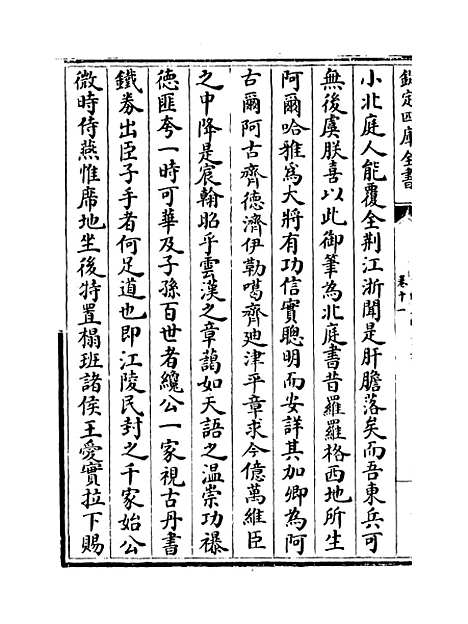 欽定四庫全書
卷十一
小北庭人能覆全荆江浙聞是肝膽落矣而吾東兵可
無後虞朕喜以此御筆為北庭書昔羅羅格西地所生
阿爾哈雅為大將有功信實聰明而安詳其加卿為阿
古爾阿古齊德濟伊勒噶齊廸津平章求今億萬維臣
之中降是宸翰昭乎雲漢之章藹如天語之温崇功襮
德匪夸一時可華及子孫百世者纔公一家視古丹書
鐵券出臣子手者何足道也即江陵民封之千家始公
微時侍燕惟席地坐後特置榻班諸侯王愛實拉下賜